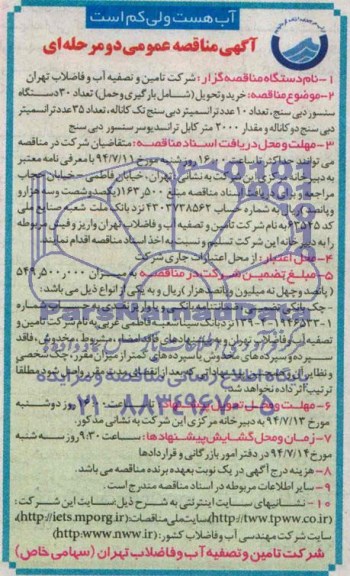 آب هست ولی کم است
آگهی مناقصه عمومی دو مرحله ای
۱- نام دستگاه مناقصه گزار: شرکت تامین و تصفیه آب و فاضلاب تهران
۲- موضوع مناقصه: خرید و تحویل (شامل بارگیری و حمل) تعداد ۳۰ دستگاه
سنسور دبی سنج، تعداد ۱۰ عدد ترانسمیتر دبی سنج تک کاناله، تعداد ۳۵ عدد ترانسمیتر
دبی سنج دو کاناله و مقدار ۲۰۰۰ متر کابل ترانسدیوسر سنسور دبی سنج
۳- مهلت و محل دریافت اسناد مناقصه: متقاضیان شرکت در مناقصه
می توانند حداکثر تا ساعت ۱۶ روز شنبه مورخ ۹۴/۷/۱۱ با معرفی نامه معتبر
به دبیر خانه شرکت به نشانی تهران- خیابان فاطمی - خیابان حجاب
مراجعه و اسناد مناقصه مبلغ ۱۱۶۳٫۵۰۰ یکصد و شصت و سه هزار و
پانصد ریال به شماره حساب ۴۳۰۳۷۳۸۵۶۲ نزد بانک ملت شعبه صنایع ملی
کد ۶۳۵۲۵ به نام شرکت تامین و تصفیه آب و فاضلاب تهران واریز و فیش مربوطه
را به دبیر خانه این شرکت تسلیم و نسبت به اخذ اسناد مناقصه اقدام نمایند.
۴- محل اعتبار: از محل اعتبارات جاری شرکت
۵- مبلغ تضمین شرکت در مناقصه: به میزان ۵۴۹,۵۰۰,۰۰۰
(پانصد و چهل نه میلیون و پانصد هزار) ریال و به یکی از انواع ذیل می باشد:
شماره
نزد بانک سینا شعبه فاطمی غربی به نام شرکت تامین و
تصفیه آب و فاضلاب تهران و به پیشنهادهای فاقد امضاء، مشروط، مخدوش، فاقد
سپرده و سپرده های مخدوش یا سپرده های کمتر از میزان مقرر، چک شخصی
و نظایر آن و پیشنهاداتی که بعد از انقضای مدت مقرر واصل شود مطلقا
ترتیب اثر داده نخواهد شد.
۶- مهلت و محل تحویل ساعت روز دوشنبه
مورخ ۹۴/۷/۱۳ به دبیر خانه مرکزی این شرکت به نشانی مذکور.
۷- زمان و محل گشایش پیشنهادها: ساعت ۹:۳۰ روز سه شنبه
مورخ ۹۴/۷/۱۴ در دفتر امور بازرگانی و قراردادها
۸- هزینه درج آگهی در یک نوبت بعهده برنده مناقصه می باشد.
۹- سایر اطلاعات مربوطه در اسناد مناقصه مندرج است.
۱۰- نشانیهای سایت اینترنتی به شرح ذیل: سایت این شرکت:
(http://tww.tpww.co.ir) سایت ملی مناقصات: (http://iets.mporg.ir)
سایت شرکت مهندسی آب و فاضلاب کشور: (http:www.nww.ir)
شرکت تامین و تصفیه آب و فاضلاب تهران (سهامی خاص)
ParsNamadData
پایگاه اطلاع رسانی مناقصه و مزایده
۰۲۱-۸۸۳۴۹۶۷۰-۵